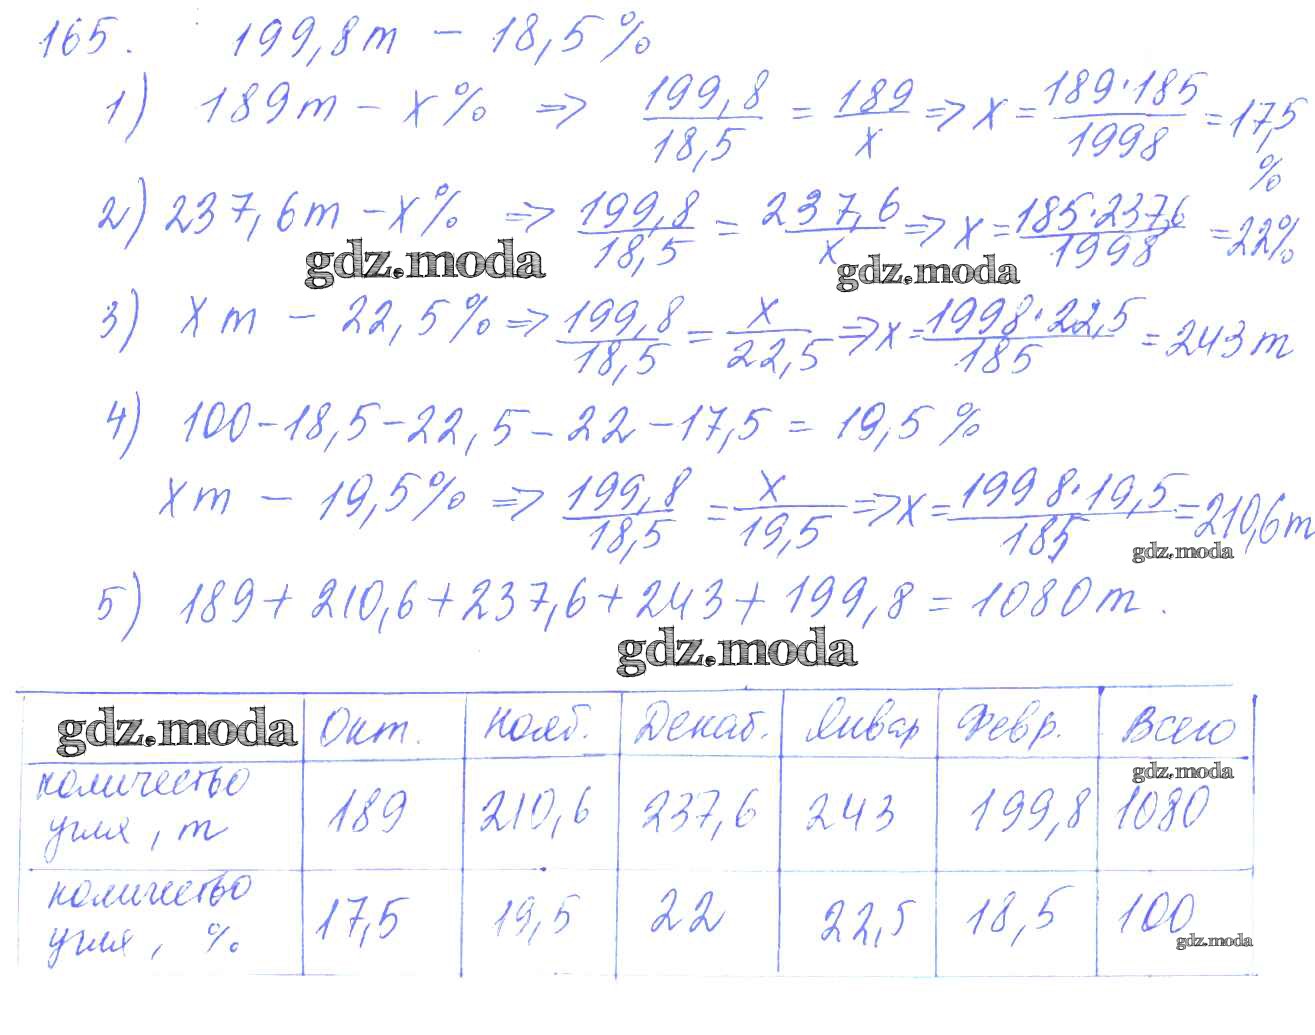 165. 199,8т – 18,5%
1) 189т – x% => 199,8/18,5 = 189/x => x = 189·185/1998 = 17,5%
2) 237,6т – x% => 199,8/18,5 = 237,6/x => x = 185·237,6/1998 = 22%
gdz.moda gdz.moda
3) xт – 22,5% => 199,8/18,5 = x/22,5 => x = 1998·22,5/185 = 243т
4) 100 – 18,5 – 22,5 – 22 – 17,5 = 19,5%
xт – 19,5% => 199,8/18,5 = x/19,5 => x = 1998·19,5/185 = 210,6т
gdz.moda
5) 189 + 210,6 + 237,6 + 243 + 199,8 = 1080т.
gdz.moda
gdz.moda Окт. Нояб. Декаб. Январ Февр. Всего
gdz.moda
количество
угля, т 189 210,6 237,6 243 199,8 1080
количество
угля, % 17,5 19,5 22 22,5 18,5 100
gdz.moda